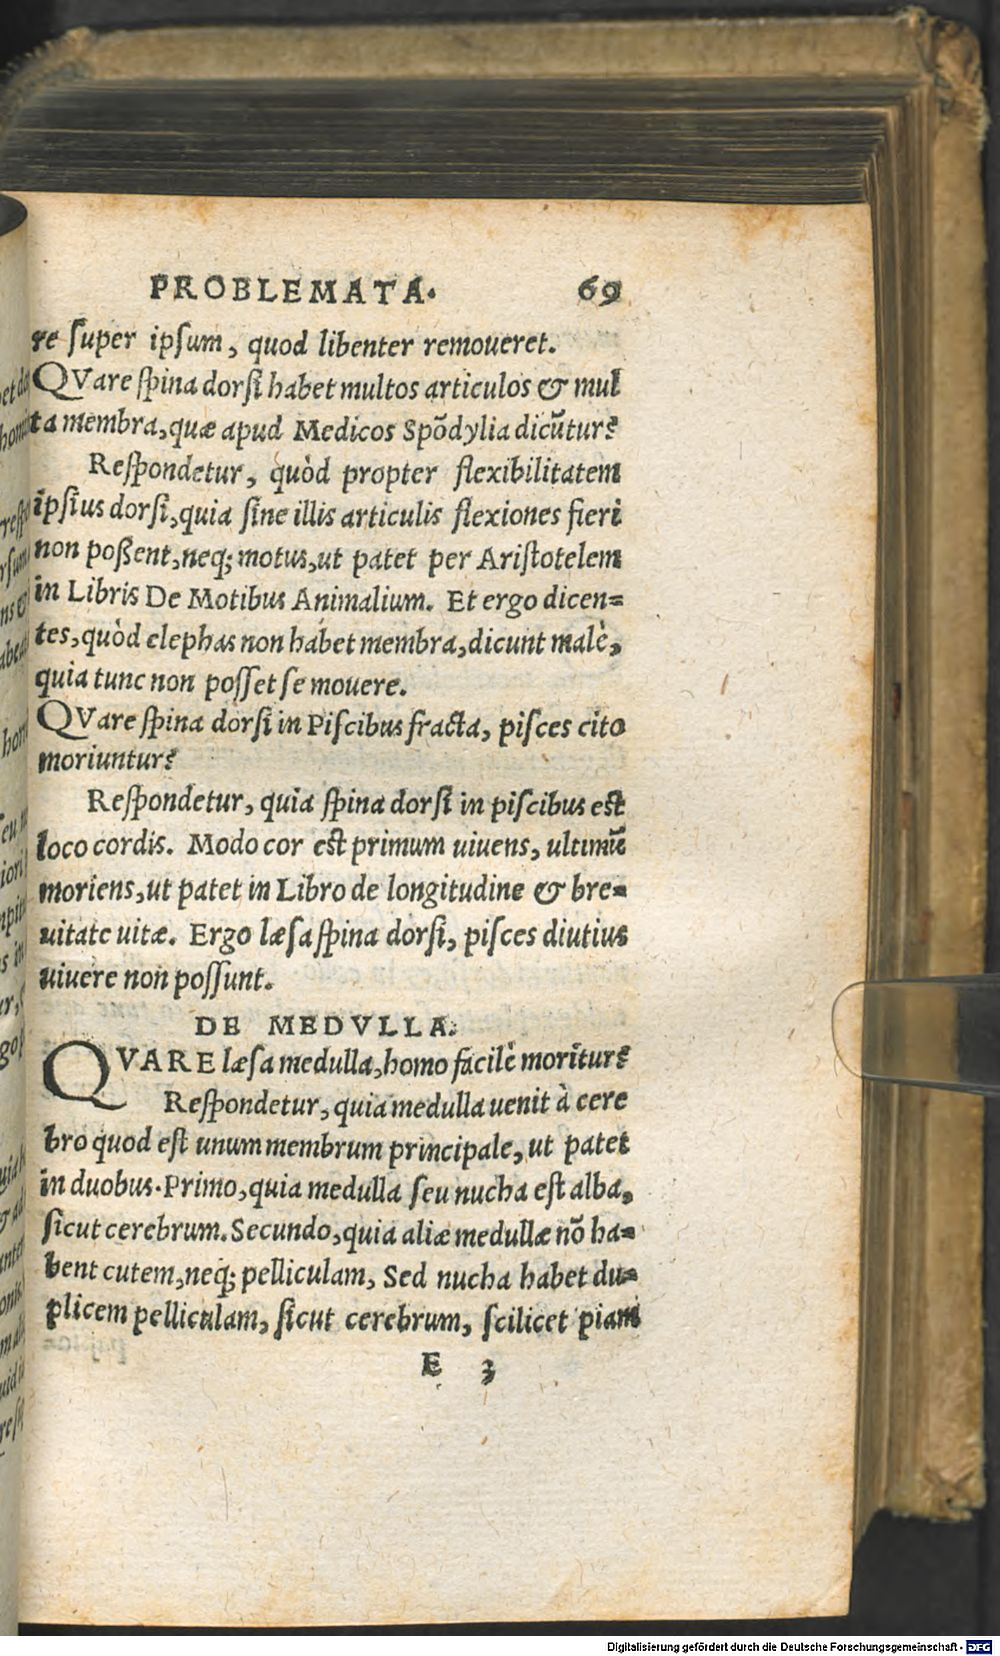 PROBLEMATA. 69
re super ipsum, quod libenter remoueret.
QVare spina dorsi habet multos articulos & mul
ta membra, quæ apud Medicos Spõdylia dicũtur?
Respondetur, quòd propter flexibilitatem
ipsius dorsi, quia sine illis articulis flexiones fieri
non poßent, neq; motus, ut patet per Aristotelem
in Libris De Motibus Animalium. Et ergo dicen=
tes, quòd elephas non habet membra, dicunt malè,
quia tunc non posset se mouere.
QVare spina dorsi in Piscibus fracta, pisces cito
moriuntur?
Respondetur, quia spina dorsi in piscibus est
loco cordis. Modo cor est primum uiuens, ultimũ
moriens, ut patet in Libro de longitudine & bre=
uitate uitæ. Ergo læsa spina dorsi, pisces diutius
uiuere non possunt.
DE MEDVLLA.
QVARE læsa medulla, homo facilè moritur?
Respondetur, quia medulla uenit à cere
bro quod est unum membrum principale, ut patet
in duobus. Primo, quia medulla seu nucha est alba,
sicut cerebrum. Secundo, quia aliæ medullæ nõ ha=
bent cutem, neq; pelliculam, Sed nucha habet du=
plicem pelliculam, sicut cerebrum, scilicet piam
E 3
Digitalisierung gefördert durch die Deutsche Forschungsgemeinschaft - DFG